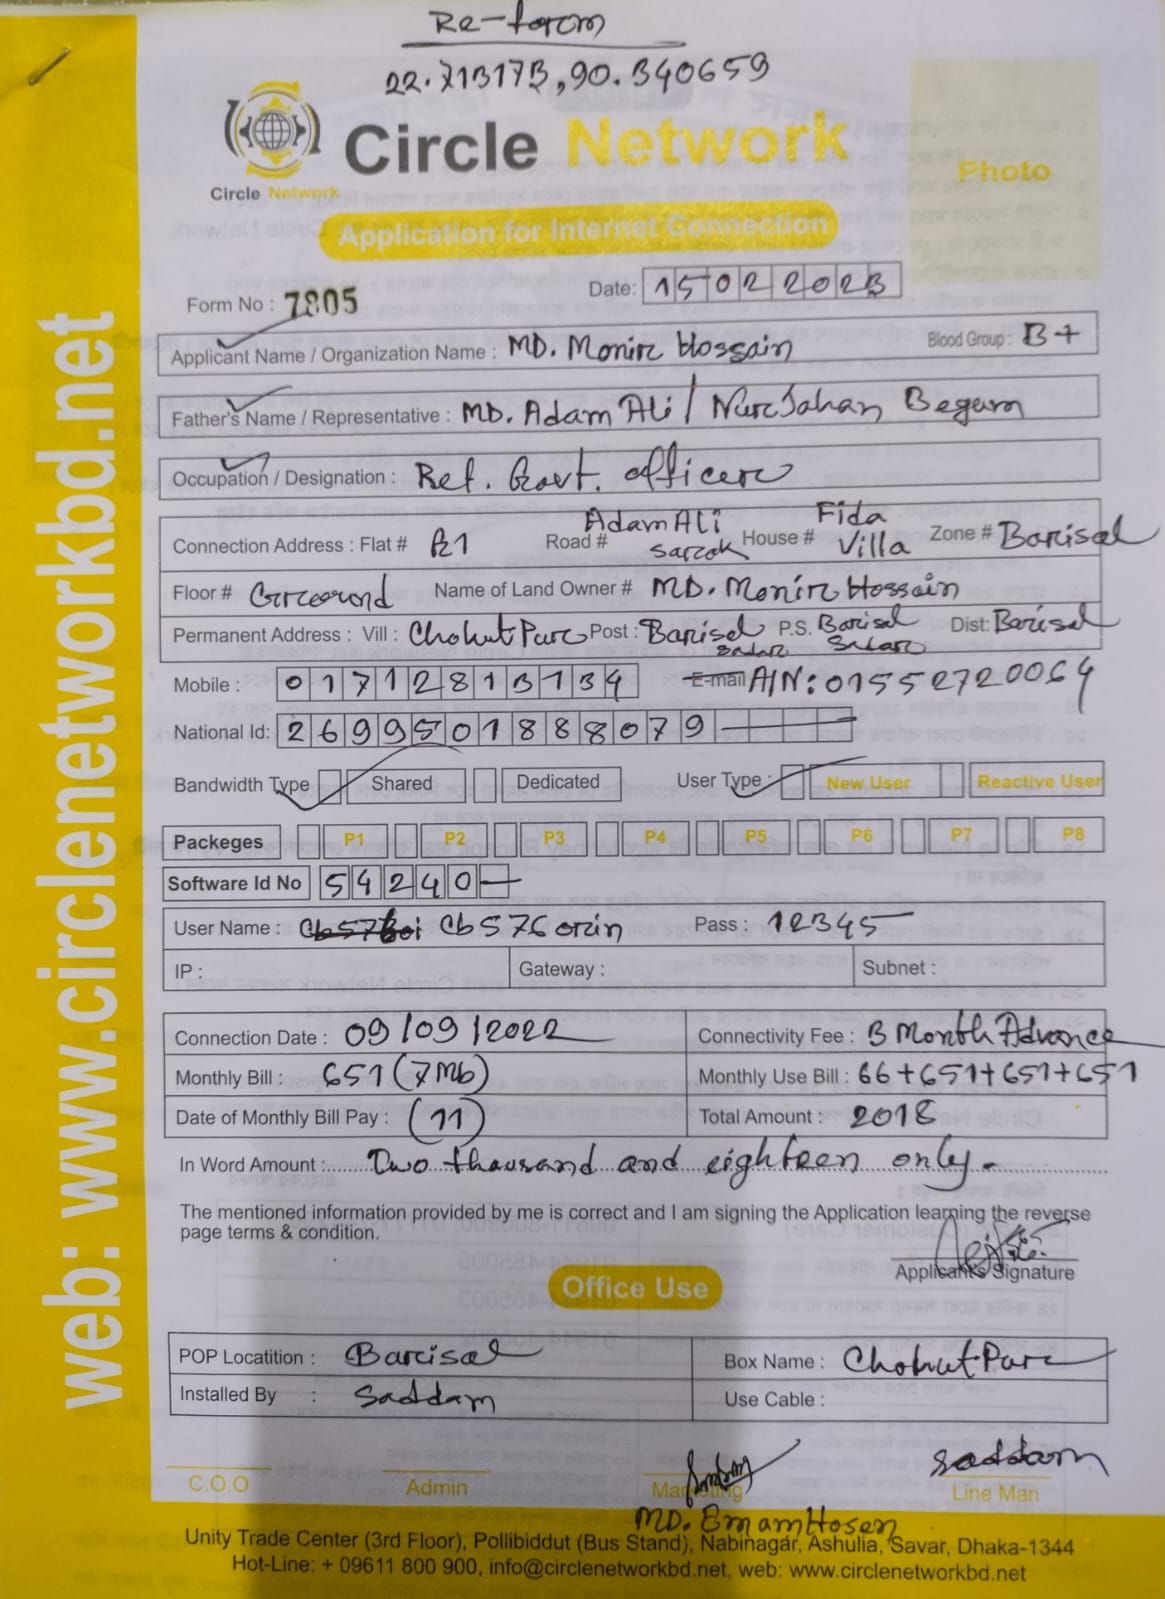 Re-form
22.713173,90.340659
Circle Network
Circle Network
Photo
Application for Internet Connection
Form No : 7805
Date: 15022023
Applicant Name / Organization Name : MD. Monir Hossain Blood Group : B+
Father's Name / Representative : MD. Adam Ali / Nurjahan Begum
Occupation / Designation : Ret. Govt. officer
Connection Address : Flat # R1 Road # Adam Ali Sarok House # Fida Villa Zone # Barisal
Floor # Ground Name of Land Owner # MD. Monir Hossain
Permanent Address : Vill : ChohutPur Post : Barisal Sadar P.S. Barisal Sadar Dist: Barisal
Mobile : 01712813134 E-mail A/N: 01552720064
National Id: 2699501888079
Bandwidth Type Shared Dedicated User Type : New User Reactive User
Packeges P1 P2 P3 P4 P5 P6 P7 P8
Software Id No 54240
User Name : Cb576orin Pass : 12345
IP : Gateway : Subnet :
Connection Date : 09/09/2022 Connectivity Fee : 3 Month Advance
Monthly Bill : 651 (7Mb) Monthly Use Bill : 66+651+651+651
Date of Monthly Bill Pay : (11) Total Amount : 2018
In Word Amount : Two thousand and eighteen only.
The mentioned information provided by me is correct and I am signing the Application learning the reverse
page terms & condition.
Applicant's Signature
Office Use
POP Locatition : Barisal Box Name : ChohutPur
Installed By : Saddam Use Cable :
Saddam
C.O.O Admin Marketing Line Man
MD. EmamHosen
Unity Trade Center (3rd Floor), Pollibiddut (Bus Stand), Nabinagar, Ashulia, Savar, Dhaka-1344
Hot-Line: + 09611 800 900, info@circlenetworkbd.net, web: www.circlenetworkbd.net
web: www.circlenetworkbd.net